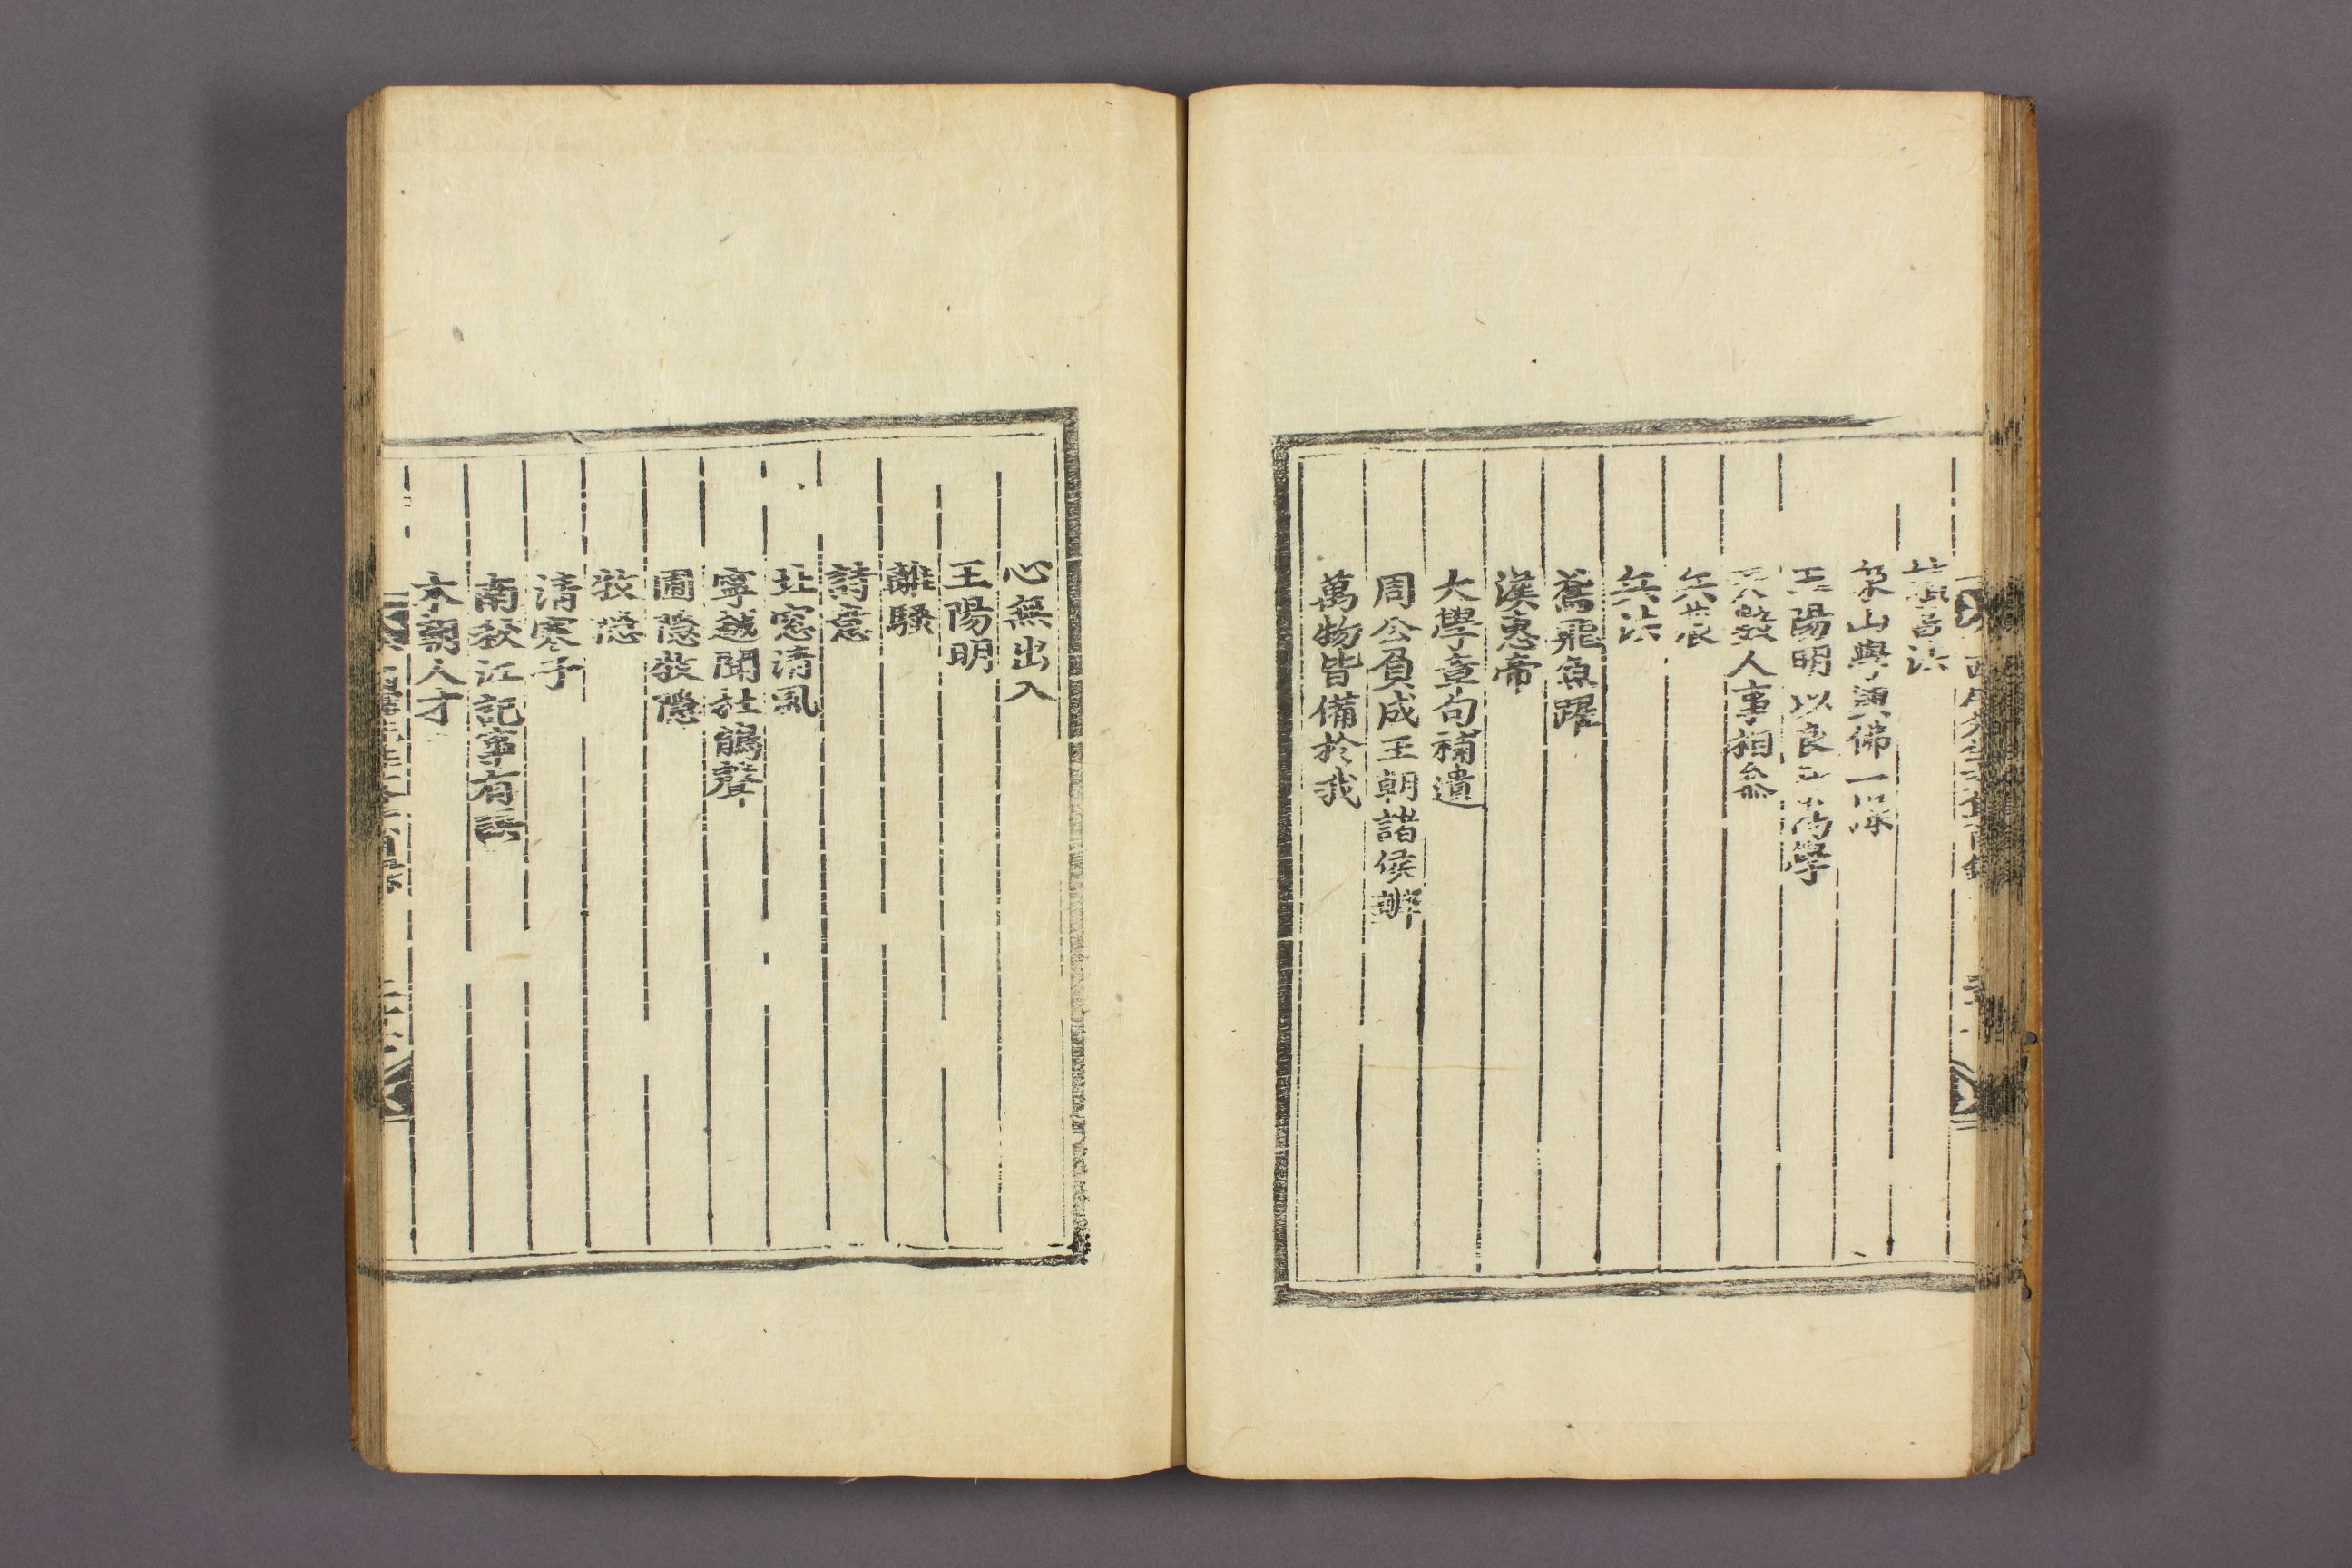 書法
象山與
王陽明以良知爲學
天數人事相參
兵農
兵法
鳶飛魚躍
漢惠帝
大學章句補遺
周公負成王朝諸侯辨
萬物皆備於我
心無出入
王陽明
離騷
詩意
北窓清風
寧越聞杜鵑聲
圃隱牧隱
牧隱
清寒子
南秋江記事有誤
本朝人才